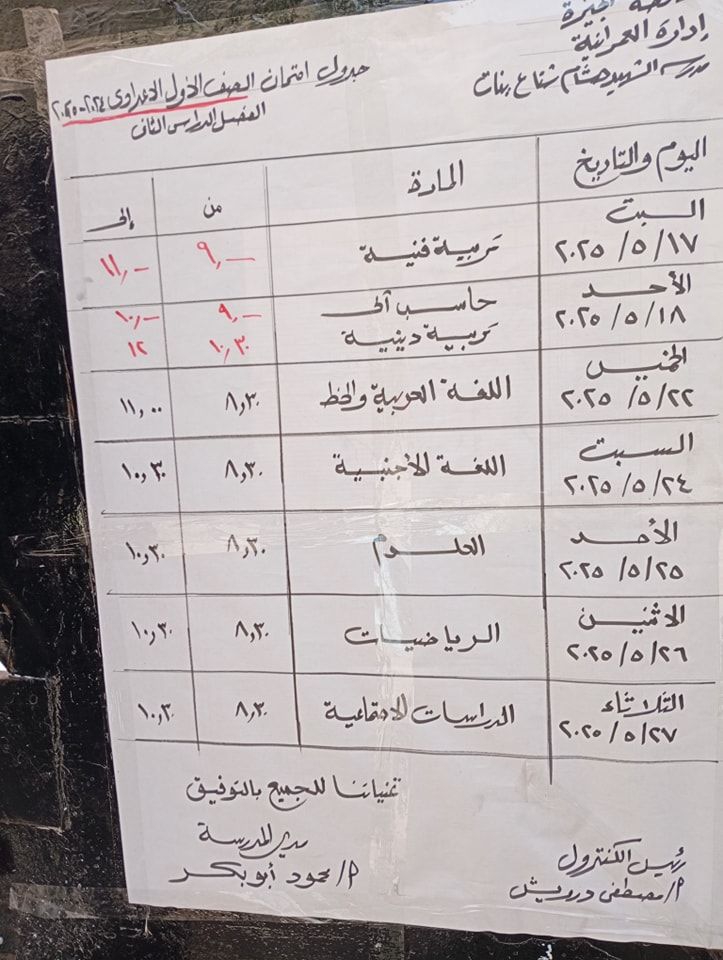 الجيزة
إدارة العمرانية
مدرسة الشهيد هشام شتاع بنات
جدول امتحان الصف الأول الاعدادى ٢٠٢٤-٢٠٢٥
الفصل الدراسى الثانى
اليوم والتاريخ المادة من إلى
السبت ٢٠٢٥/٥/١٧ تربية فنية ٩,— ١١,—
الأحد ٢٠٢٥/٥/١٨ حاسب آلى ٩,— ١٠,—
تربية دينية ١٠,٣٠ ١٢
الخميس ٢٠٢٥/٥/٢٢ اللغة العربية والخط ٨,٣٠ ١١,٠٠
السبت ٢٠٢٥/٥/٢٤ اللغة الأجنبية ٨,٣٠ ١٠,٣٠
الأحد ٢٠٢٥/٥/٢٥ العلوم ٨,٣٠ ١٠,٣٠
الاثنين ٢٠٢٥/٥/٢٦ الرياضيات ٨,٣٠ ١٠,٣٠
الثلاثاء ٢٠٢٥/٥/٢٧ الدراسات الاجتماعية ٨,٣٠ ١٠,٣٠
تمنياتنا للجميع بالتوفيق
رئيس الكنترول
أ/مصطفى درويش
مدير المدرسة
أ/محمود أبو بكر